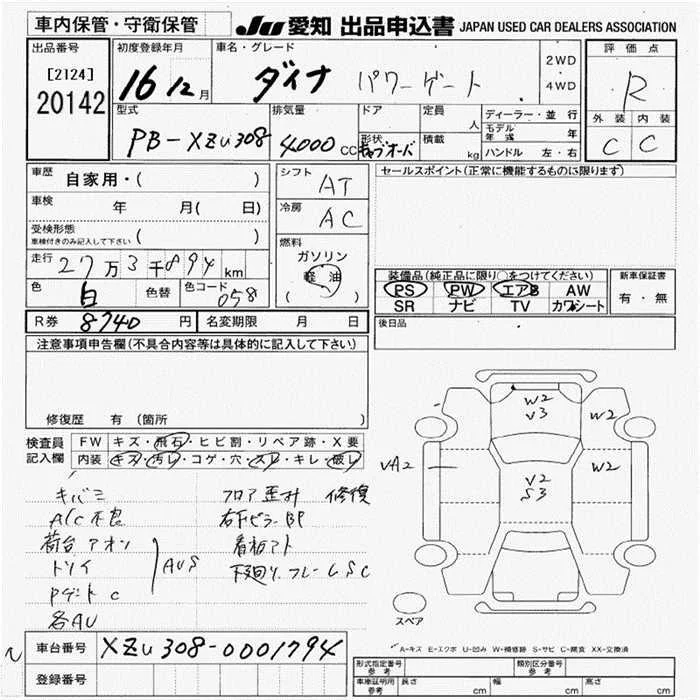 車内保管・守衛保管
JU 愛知 出品申込書 JAPAN USED CAR DEALERS ASSOCIATION
出品番号
[2124]
20142
初度登録年月
16 12月
車名・グレード
ダイナ パワーゲート
2WD
4WD
評価点
R
外装 内装
C C
型式
PB-XZU308
排気量
4000 cc
ドア
形状
キャブオーバ
定員
人
積載
kg
ディーラー・並行
モデル年式 年
ハンドル 左・右
車歴
自家用・( )
車検
年 月( 日)
受検形態
車検付きのみ記入して下さい ( )
走行
27万3千894km
色 白 色替 色コード 058
シフト AT
冷房 AC
燃料
ガソリン
軽油
( )
セールスポイント(正常に機能するものに限ります)
装備品(純正品に限り○をつけてください)
PS PW エアB AW
SR ナビ TV カワシート
新車保証書
有・無
R券 8740 円 名変期限 月 日
後日品
注意事項申告欄(不具合内容等は具体的に記入して下さい)
修復歴 有 (箇所 )
検査員
記入欄
FW キズ・飛石・ヒビ割・リペア跡・X要
内装 キズ・汚レ・コゲ・穴・スレ・キレ・破レ
キバミ
A/C不良
荷台アオリ
トリイ
Pゲート C
各AU
AUS
フロア歪み 修復
右下ピラーBP
看板アト
下廻り、フレームSC
W2
V3
W2
VA2
W2
V2
S3
スペア
A-キズ E-エクボ U-凹み W-補修跡 S-サビ C-腐食 XX-交換済
車台番号 XZU308-0001794
登録番号
形式指定番号
参考
類別区分番号
参考
車庫証明用
参考
長さ cm 幅 cm 高さ cm